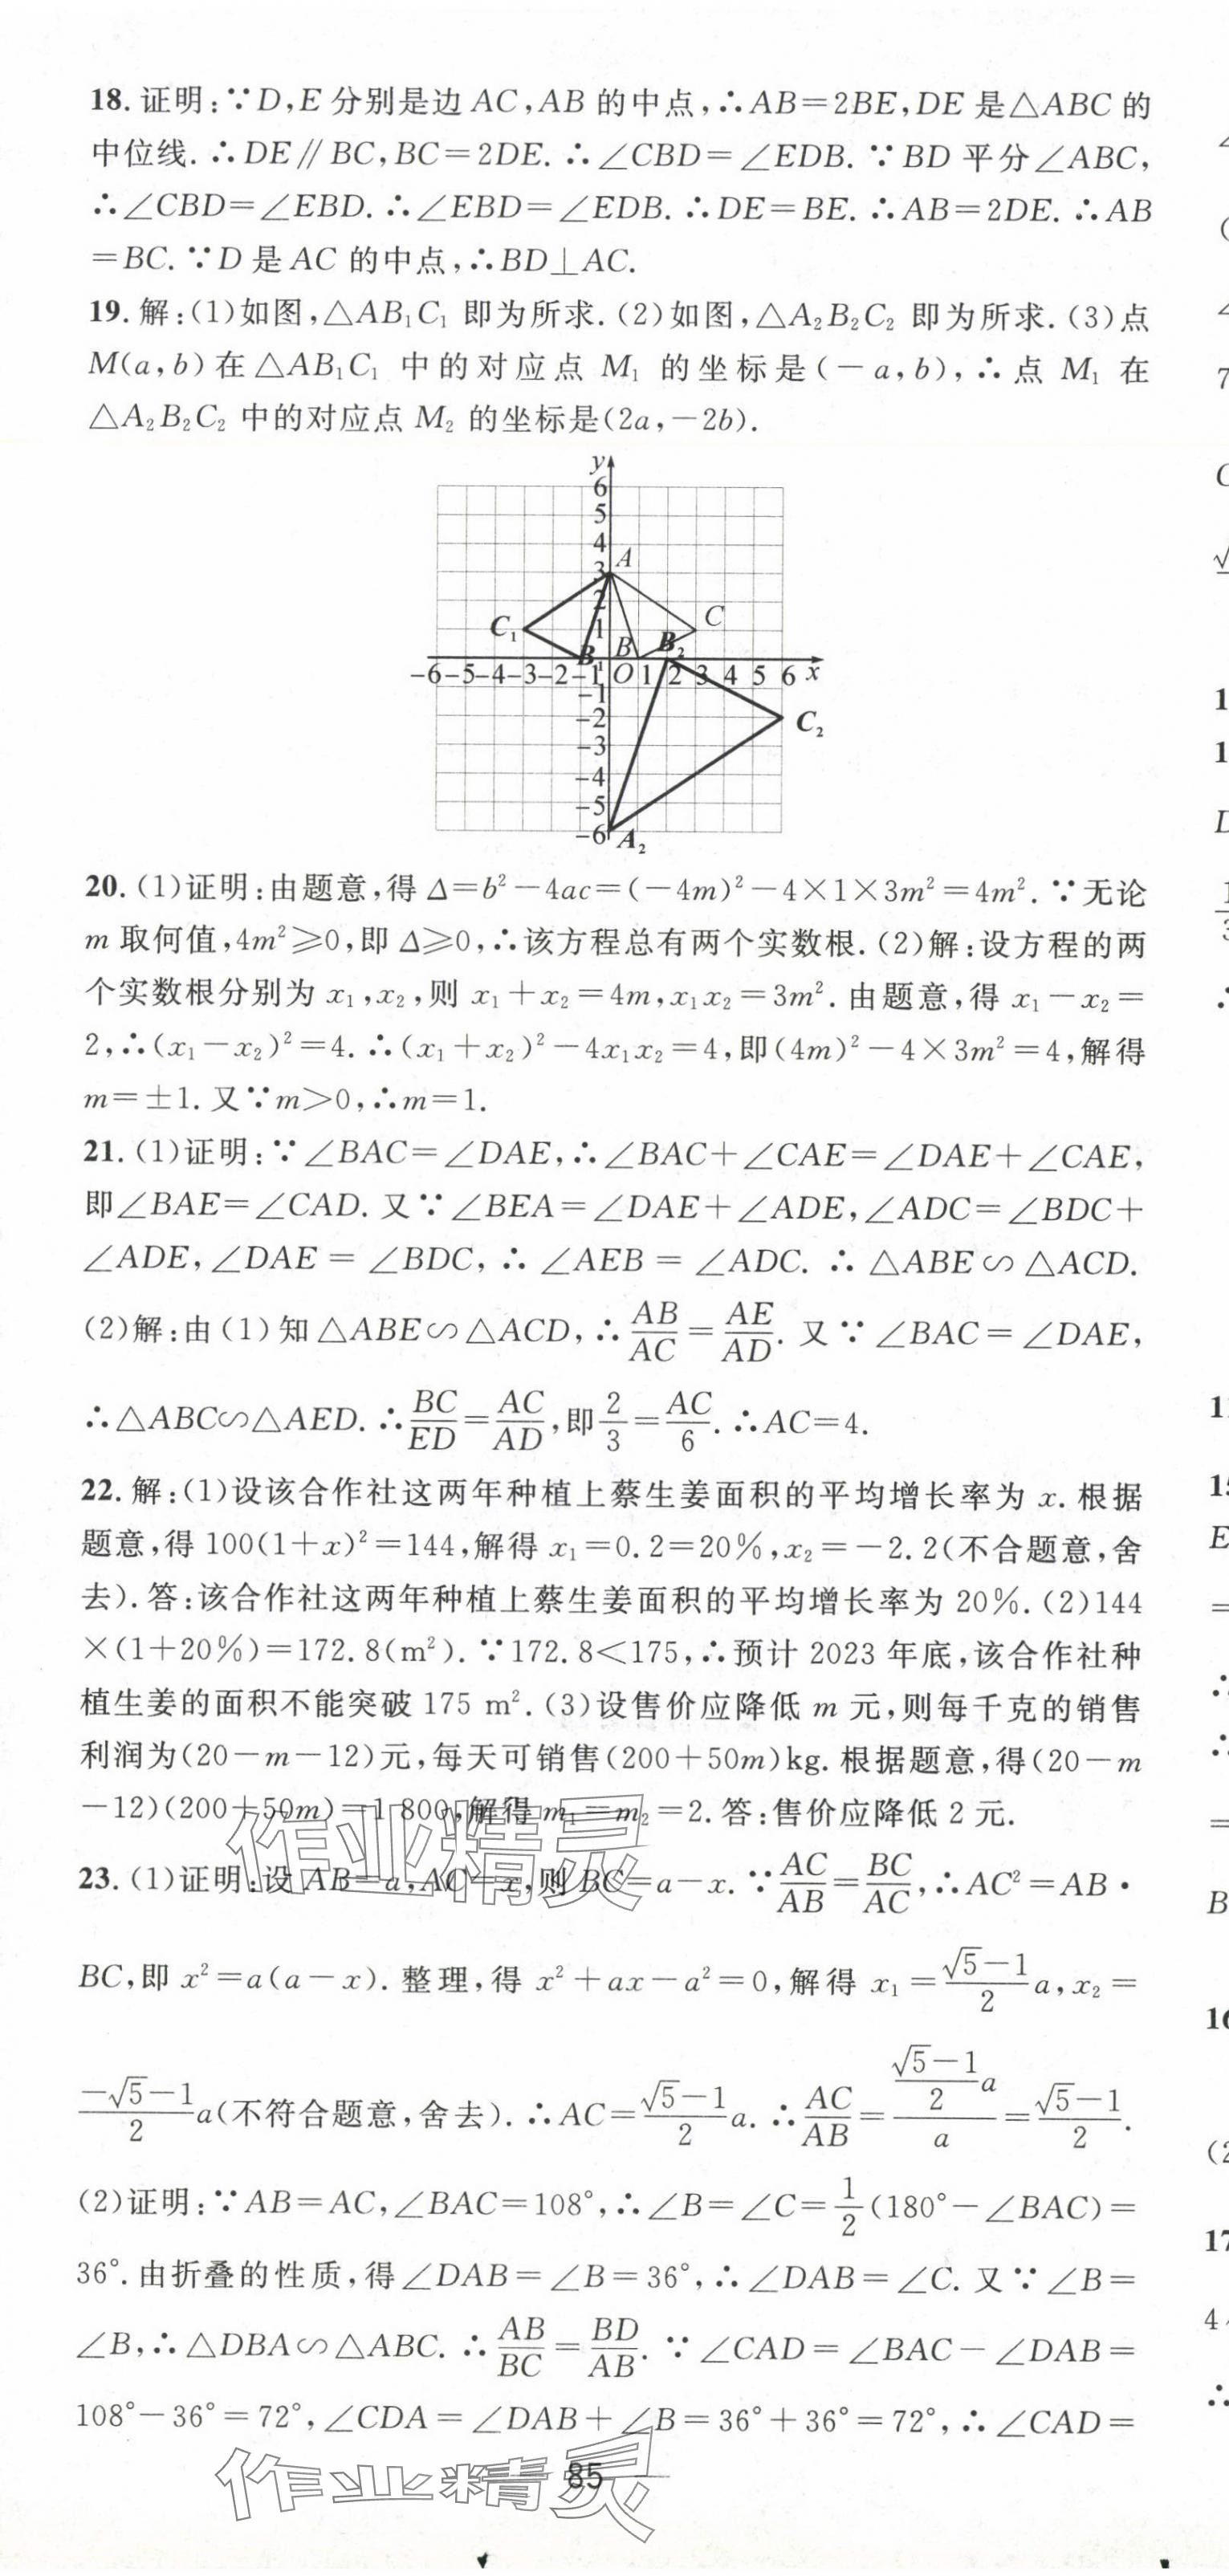 18. 证明:∵D,E 分别是边 AC,AB 的中点,∴AB=2BE,DE 是△ABC 的
中位线. ∴DE∥BC,BC=2DE. ∴∠CBD=∠EDB. ∵BD 平分∠ABC,
∴∠CBD=∠EBD. ∴∠EBD=∠EDB. ∴DE=BE. ∴AB=2DE. ∴AB
=BC. ∵D 是 AC 的中点,∴BD⊥AC.
19. 解:(1)如图,△AB₁C₁ 即为所求. (2)如图,△A₂B₂C₂ 即为所求. (3)点
M(a,b)在△AB₁C₁ 中的对应点 M₁ 的坐标是(-a,b),∴点 M₁ 在
△A₂B₂C₂ 中的对应点 M₂ 的坐标是(2a,-2b).
y
6
5
4
3 A
2
C₁ 1 B B₂ C
B₁
-6-5-4-3-2-1 O 1 2 3 4 5 6 x
-1
-2 C₂
-3
-4
-5
-6 A₂
20. (1)证明:由题意,得 Δ=b²-4ac=(-4m)²-4×1×3m²=4m². ∵无论
m 取何值,4m²≥0,即 Δ≥0,∴该方程总有两个实数根. (2)解:设方程的两
个实数根分别为 x₁,x₂,则 x₁+x₂=4m,x₁x₂=3m². 由题意,得 x₁-x₂=
2,∴(x₁-x₂)²=4. ∴(x₁+x₂)²-4x₁x₂=4,即(4m)²-4×3m²=4,解得
m=±1. 又∵m>0,∴m=1.
21. (1)证明:∵∠BAC=∠DAE,∴∠BAC+∠CAE=∠DAE+∠CAE,
即∠BAE=∠CAD. 又∵∠BEA=∠DAE+∠ADE,∠ADC=∠BDC+
∠ADE,∠DAE=∠BDC,∴∠AEB=∠ADC. ∴△ABE∽△ACD.
(2)解:由(1)知△ABE∽△ACD,∴AB/AC=AE/AD. 又∵∠BAC=∠DAE,
∴△ABC∽△AED. ∴BC/ED=AC/AD,即2/3=AC/6. ∴AC=4.
22. 解:(1)设该合作社这两年种植上蔡生姜面积的平均增长率为 x. 根据
题意,得 100(1+x)²=144,解得 x₁=0.2=20%,x₂=-2.2(不合题意,舍
去). 答:该合作社这两年种植上蔡生姜面积的平均增长率为 20%. (2)144
×(1+20%)=172.8(m²). ∵172.8<175,∴预计 2023 年底,该合作社种
植生姜的面积不能突破 175 m². (3)设售价应降低 m 元,则每千克的销售
利润为(20-m-12)元,每天可销售(200+50m)kg. 根据题意,得(20-m
-12)(200+50m)=1 800,解得 m₁=m₂=2. 答:售价应降低 2 元.
作业精灵
23. (1)证明:设 AB=a,AC=x,则 BC=a-x. ∵AC/AB=BC/AC,∴AC²=AB·
BC,即 x²=a(a-x). 整理,得 x²+ax-a²=0,解得 x₁=(√5-1)/2 a,x₂=
(-√5-1)/2 a(不符合题意,舍去). ∴AC=(√5-1)/2 a. ∴AC/AB=((√5-1)/2 a)/a=(√5-1)/2.
(2)证明:∵AB=AC,∠BAC=108°,∴∠B=∠C=1/2(180°-∠BAC)=
36°. 由折叠的性质,得∠DAB=∠B=36°,∴∠DAB=∠C. 又∵∠B=
∠B,∴△DBA∽△ABC. ∴AB/BC=BD/AB. ∵∠CAD=∠BAC-∠DAB=
108°-36°=72°,∠CDA=∠DAB+∠B=36°+36°=72°,∴∠CAD=
85
作业精灵